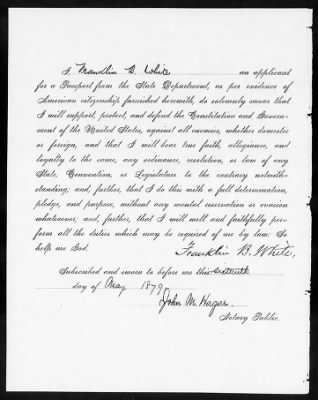 I, Franklin B. White an applicant
for a Passport from the State Department, as per evidence of
American citizenship furnished herewith, do solemnly swear that
I will support, protect, and defend the Constitution and Govern-
ment of the United States, against all enemies, whether domestic
or foreign, and that I will bear true faith, allegiance, and
loyalty to the same, any ordinance, resolution, or law of any
State, Convention, or Legislature to the contrary notwith-
standing; and, further, that I do this with a full determination,
pledge, and purpose, without any mental reservation or evasion
whatsoever; and, further, that I will well and faithfully per-
form all the duties which may be required of me by law: So
help me God.
Franklin B. White,
Subscribed and sworn to before me this sixteenth
day of May 1879
John M. Hager
Notary Public